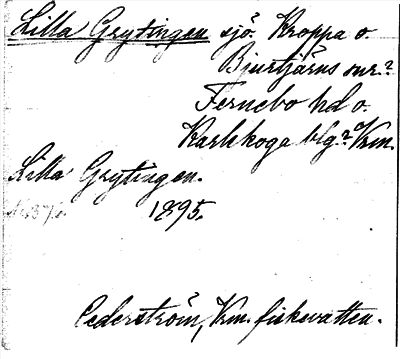 Lilla Grytingen sjö. Kroppa o.
Bjurtjärns snr.?
Fernebo hd o.
Karlskoga blg.? Vrm.
Lilla Grytingen.
1895.
Cederström, Vrm. fiskevatten.